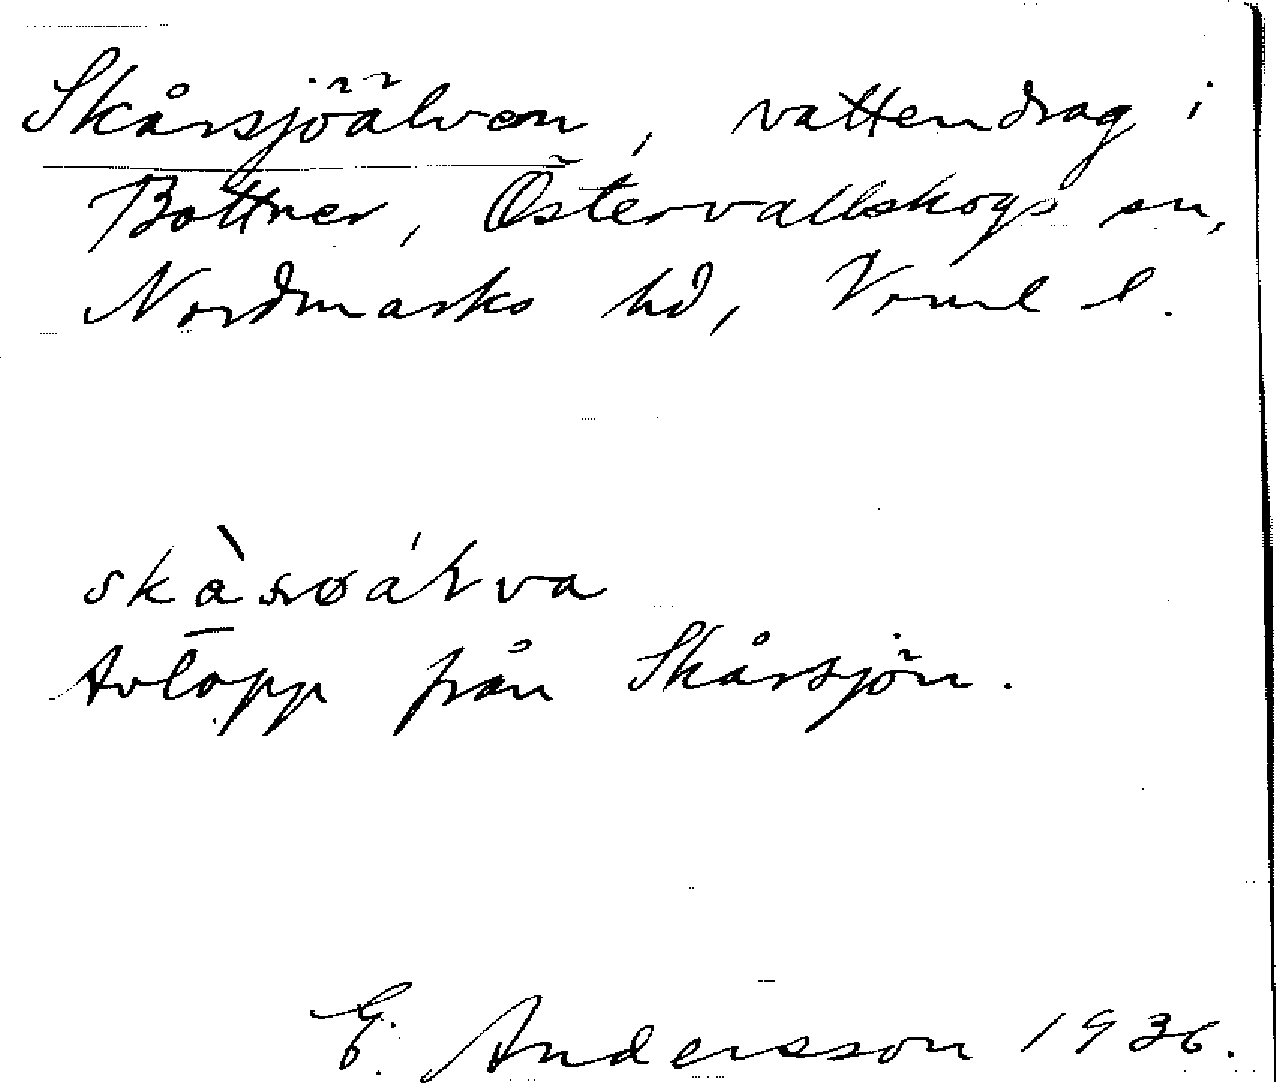 Skårsjöälven, vattendrag i
Bottner, Östervallskogs sn,
Nordmarks hd, Vrml l.
Avlopp från Skårsjön.
E. Andersson 1936.